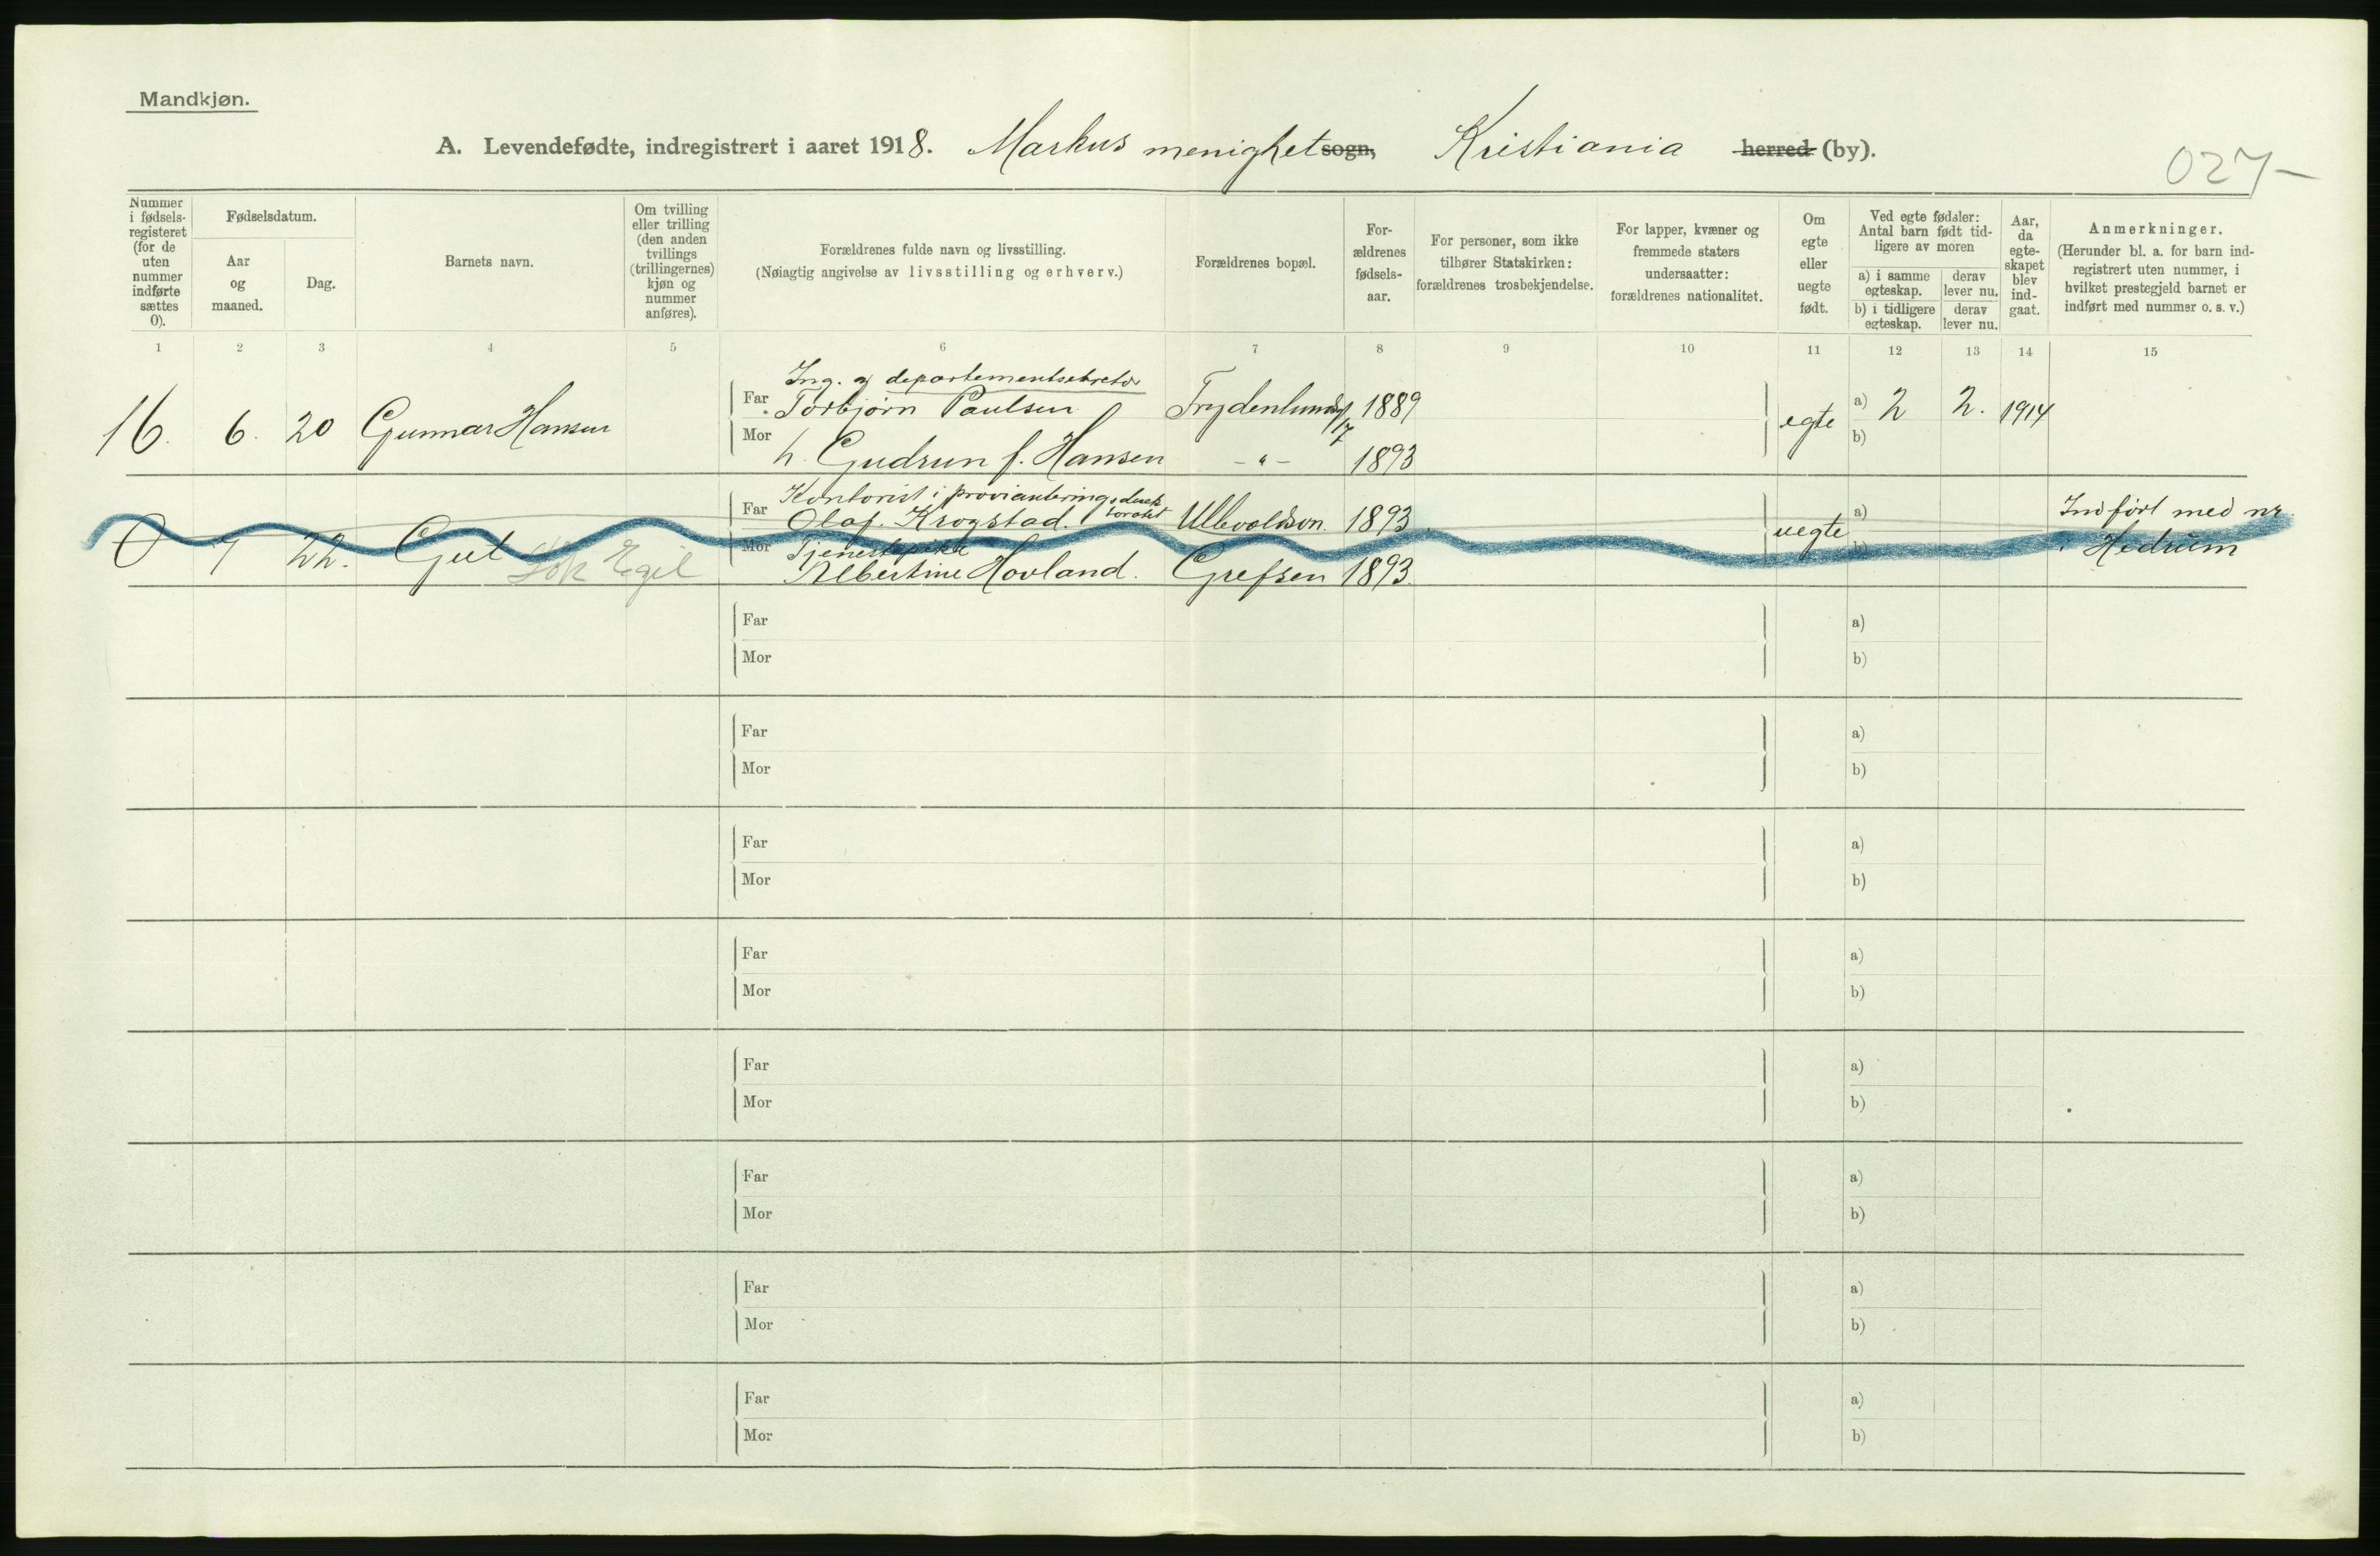 Mandkjøn.
A. Levendefødte, indregistrert i aaret 1918. Markus menighet sogn, Kristiania herred (by).
027-
Nummer i fødsels-registeret (for de uten nummer indførte sættes 0).
Fødselsdatum.
Aar og maaned.
Dag.
Barnets navn.
Om tvilling eller trilling (den anden tvillings (trillingernes) kjøn og nummer anføres).
Forældrenes fulde navn og livsstilling.
(Nøiagtig angivelse av livsstilling og erhverv.)
Forældrenes bopæl.
For-ældrenes fødsels-aar.
For personer, som ikke tilhører Statskirken: forældrenes trosbekjendelse.
For lapper, kvæner og fremmede staters undersaatter: forældrenes nationalitet.
Om egte eller uegte født.
Ved egte fødsler: Antal barn født tid-ligere av moren
a) i samme egteskap.
derav lever nu.
b) i tidligere egteskap.
derav lever nu.
Aar, da egte-skapet blev ind-gaat.
Anmerkninger.
(Herunder bl. a. for barn ind-registrert uten nummer, i hvilket prestegjeld barnet er indført med nummer o. s. v.)
1 2 3 4 5 6 7 8 9 10 11 12 13 14 15
Ing. og departementsekretær
16. 6. 20 Gunnar Hansen Far Torbjørn Paulsen Frydenlundsg 17 1889 egte a) 2 2. 1914
Mor h. Gudrun f. Hansen -"- 1893 b)
Kontorist i provianteringsdirektoratet
Far Olaf Krogstad. Ullevoldsvn. 1893. uegte a) Indført med nr.
0 7 22. Gut Egil Mor Tjenestepike b) i Hedrum
Albertine Hovland. Grefsen 1893.
Far a)
Mor b)
Far a)
Mor b)
Far a)
Mor b)
Far a)
Mor b)
Far a)
Mor b)
Far a)
Mor b)
Far a)
Mor b)
Far a)
Mor b)